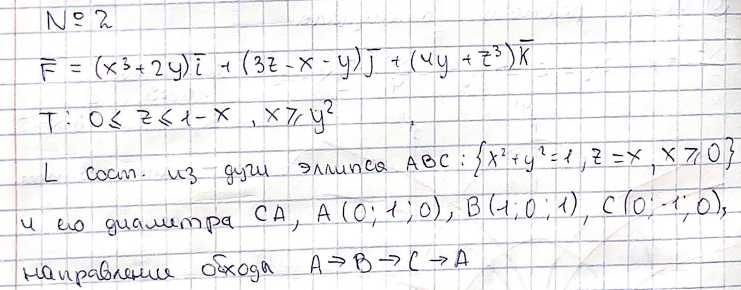 № 2
F̅ = (x³ + 2y) i̅ + (3z - x - y) j̅ + (4y + z³) k̅
T: 0 ≤ z ≤ 1 - x , x ≥ y²
L сост. из дуги эллипса ABC : {x² + y² = 1, z = x, x ≥ 0}
и его диаметра CA, A (0; 1; 0), B (1; 0; 1), C (0; -1; 0),
направление обхода A → B → C → A